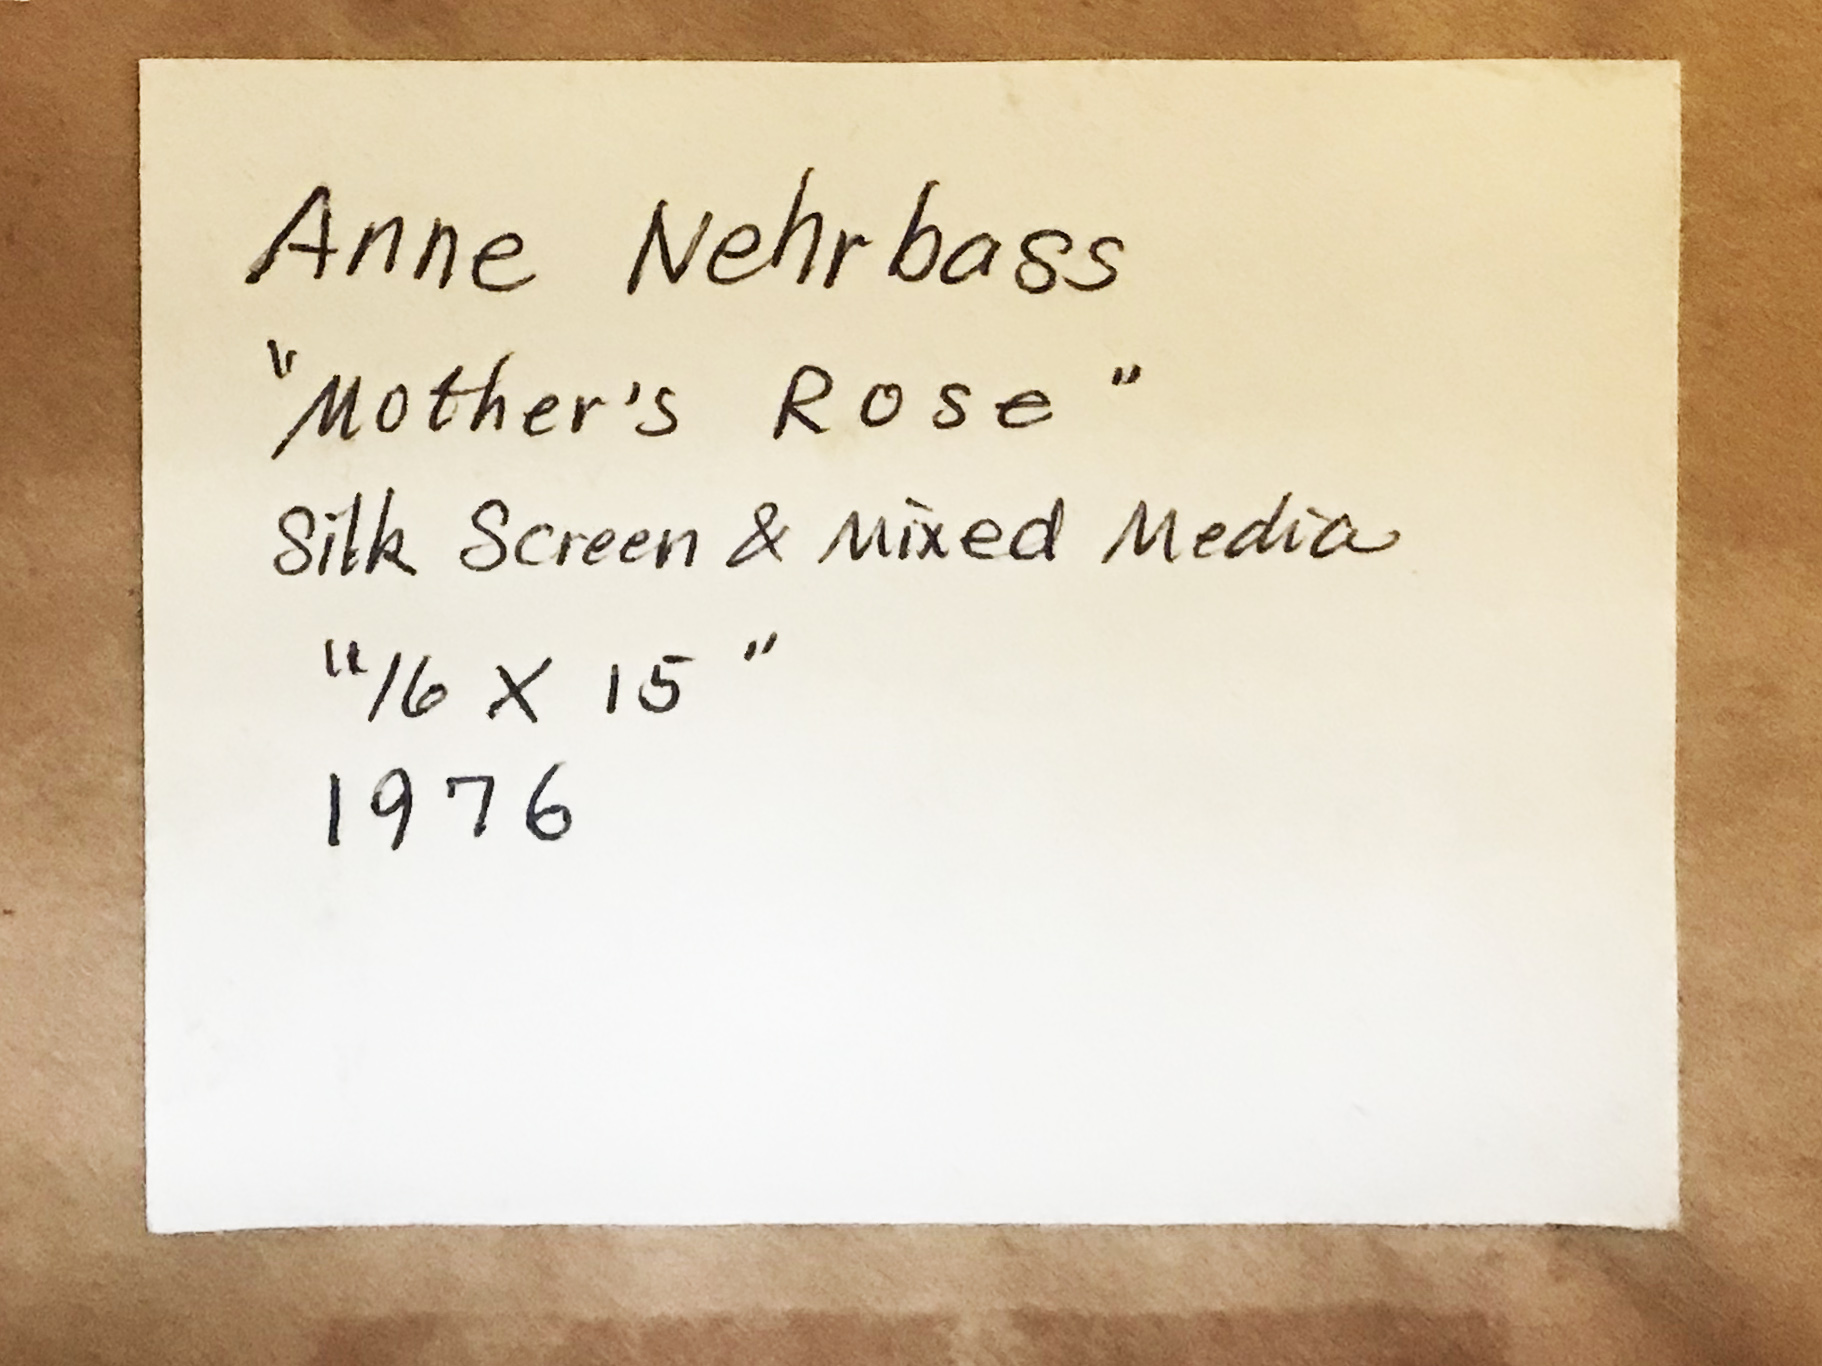 Anne Nehrbass
"Mother's Rose"
Silk Screen & Mixed Media
"16 X 15"
1976